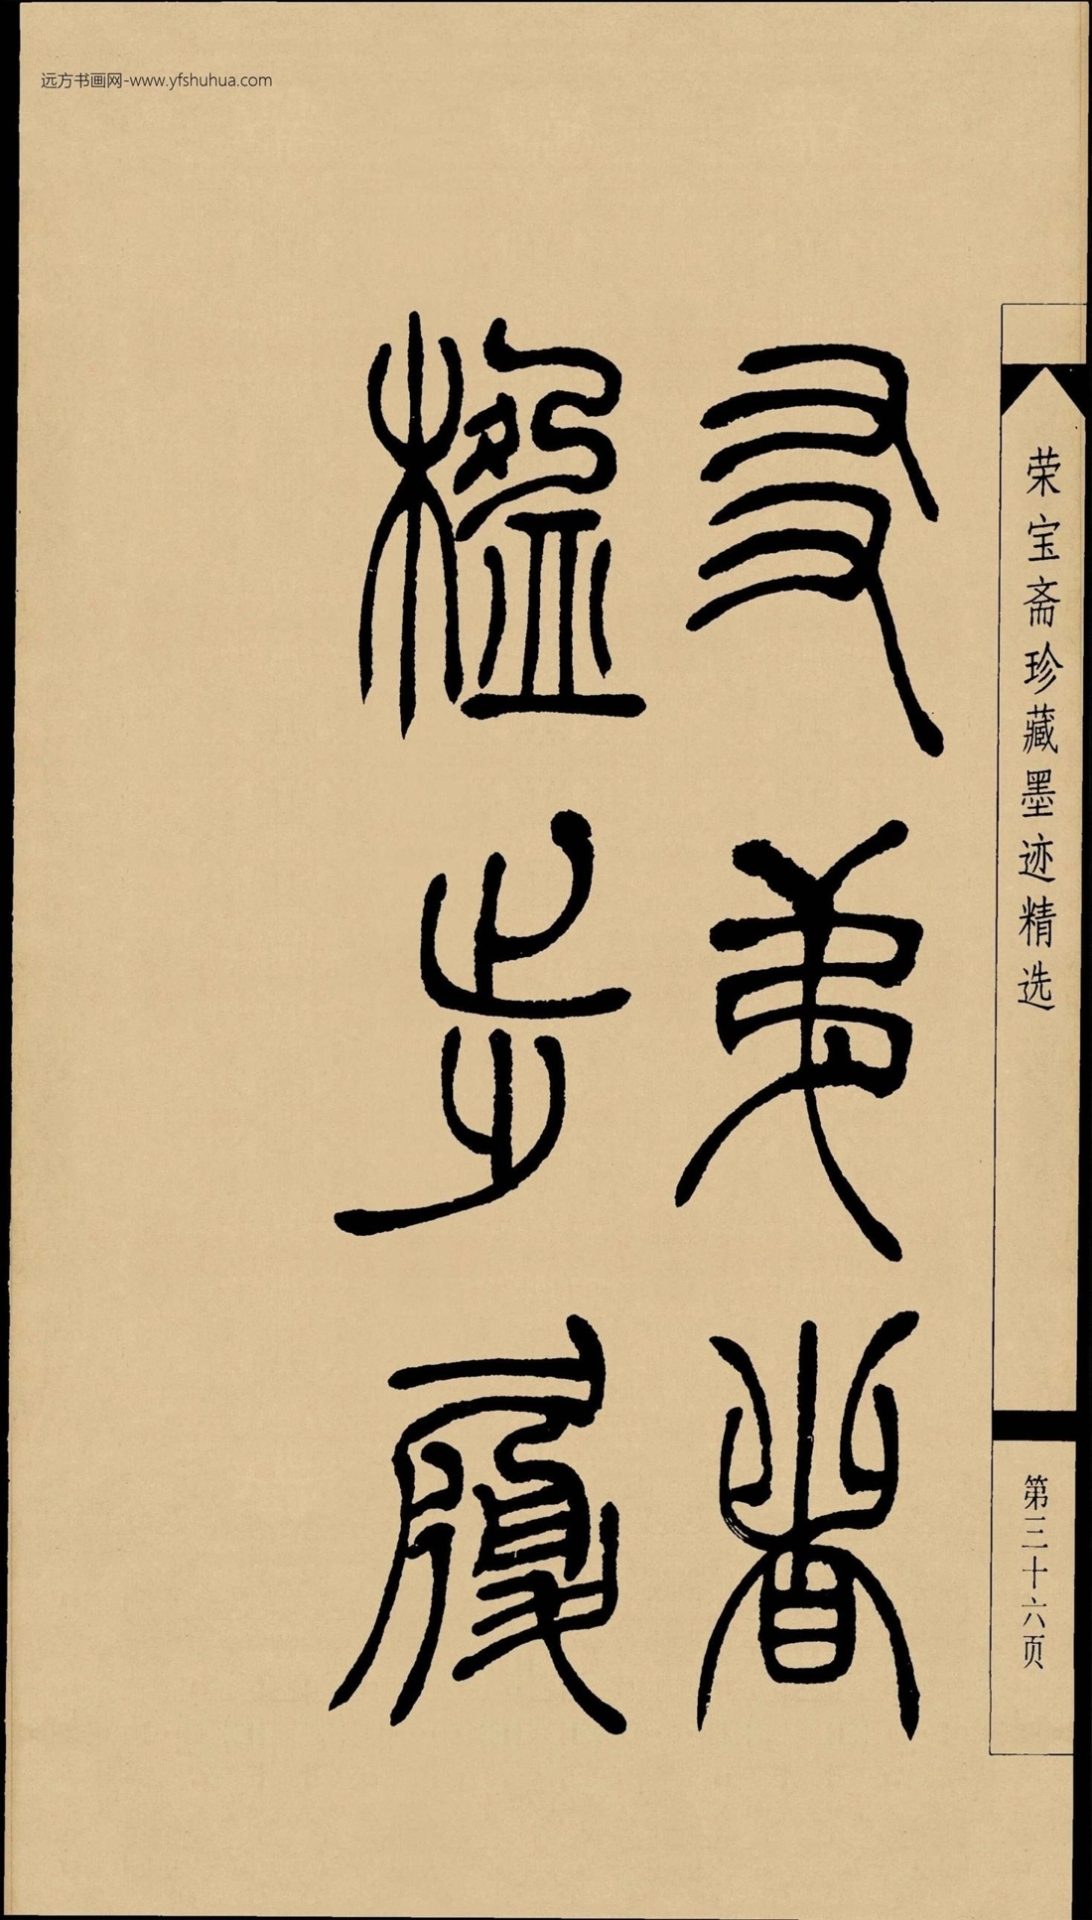 远方书画网-www.yfshuhua.com
荣宝斋珍藏墨迹精选
第三十六页
友弟者
楹步履